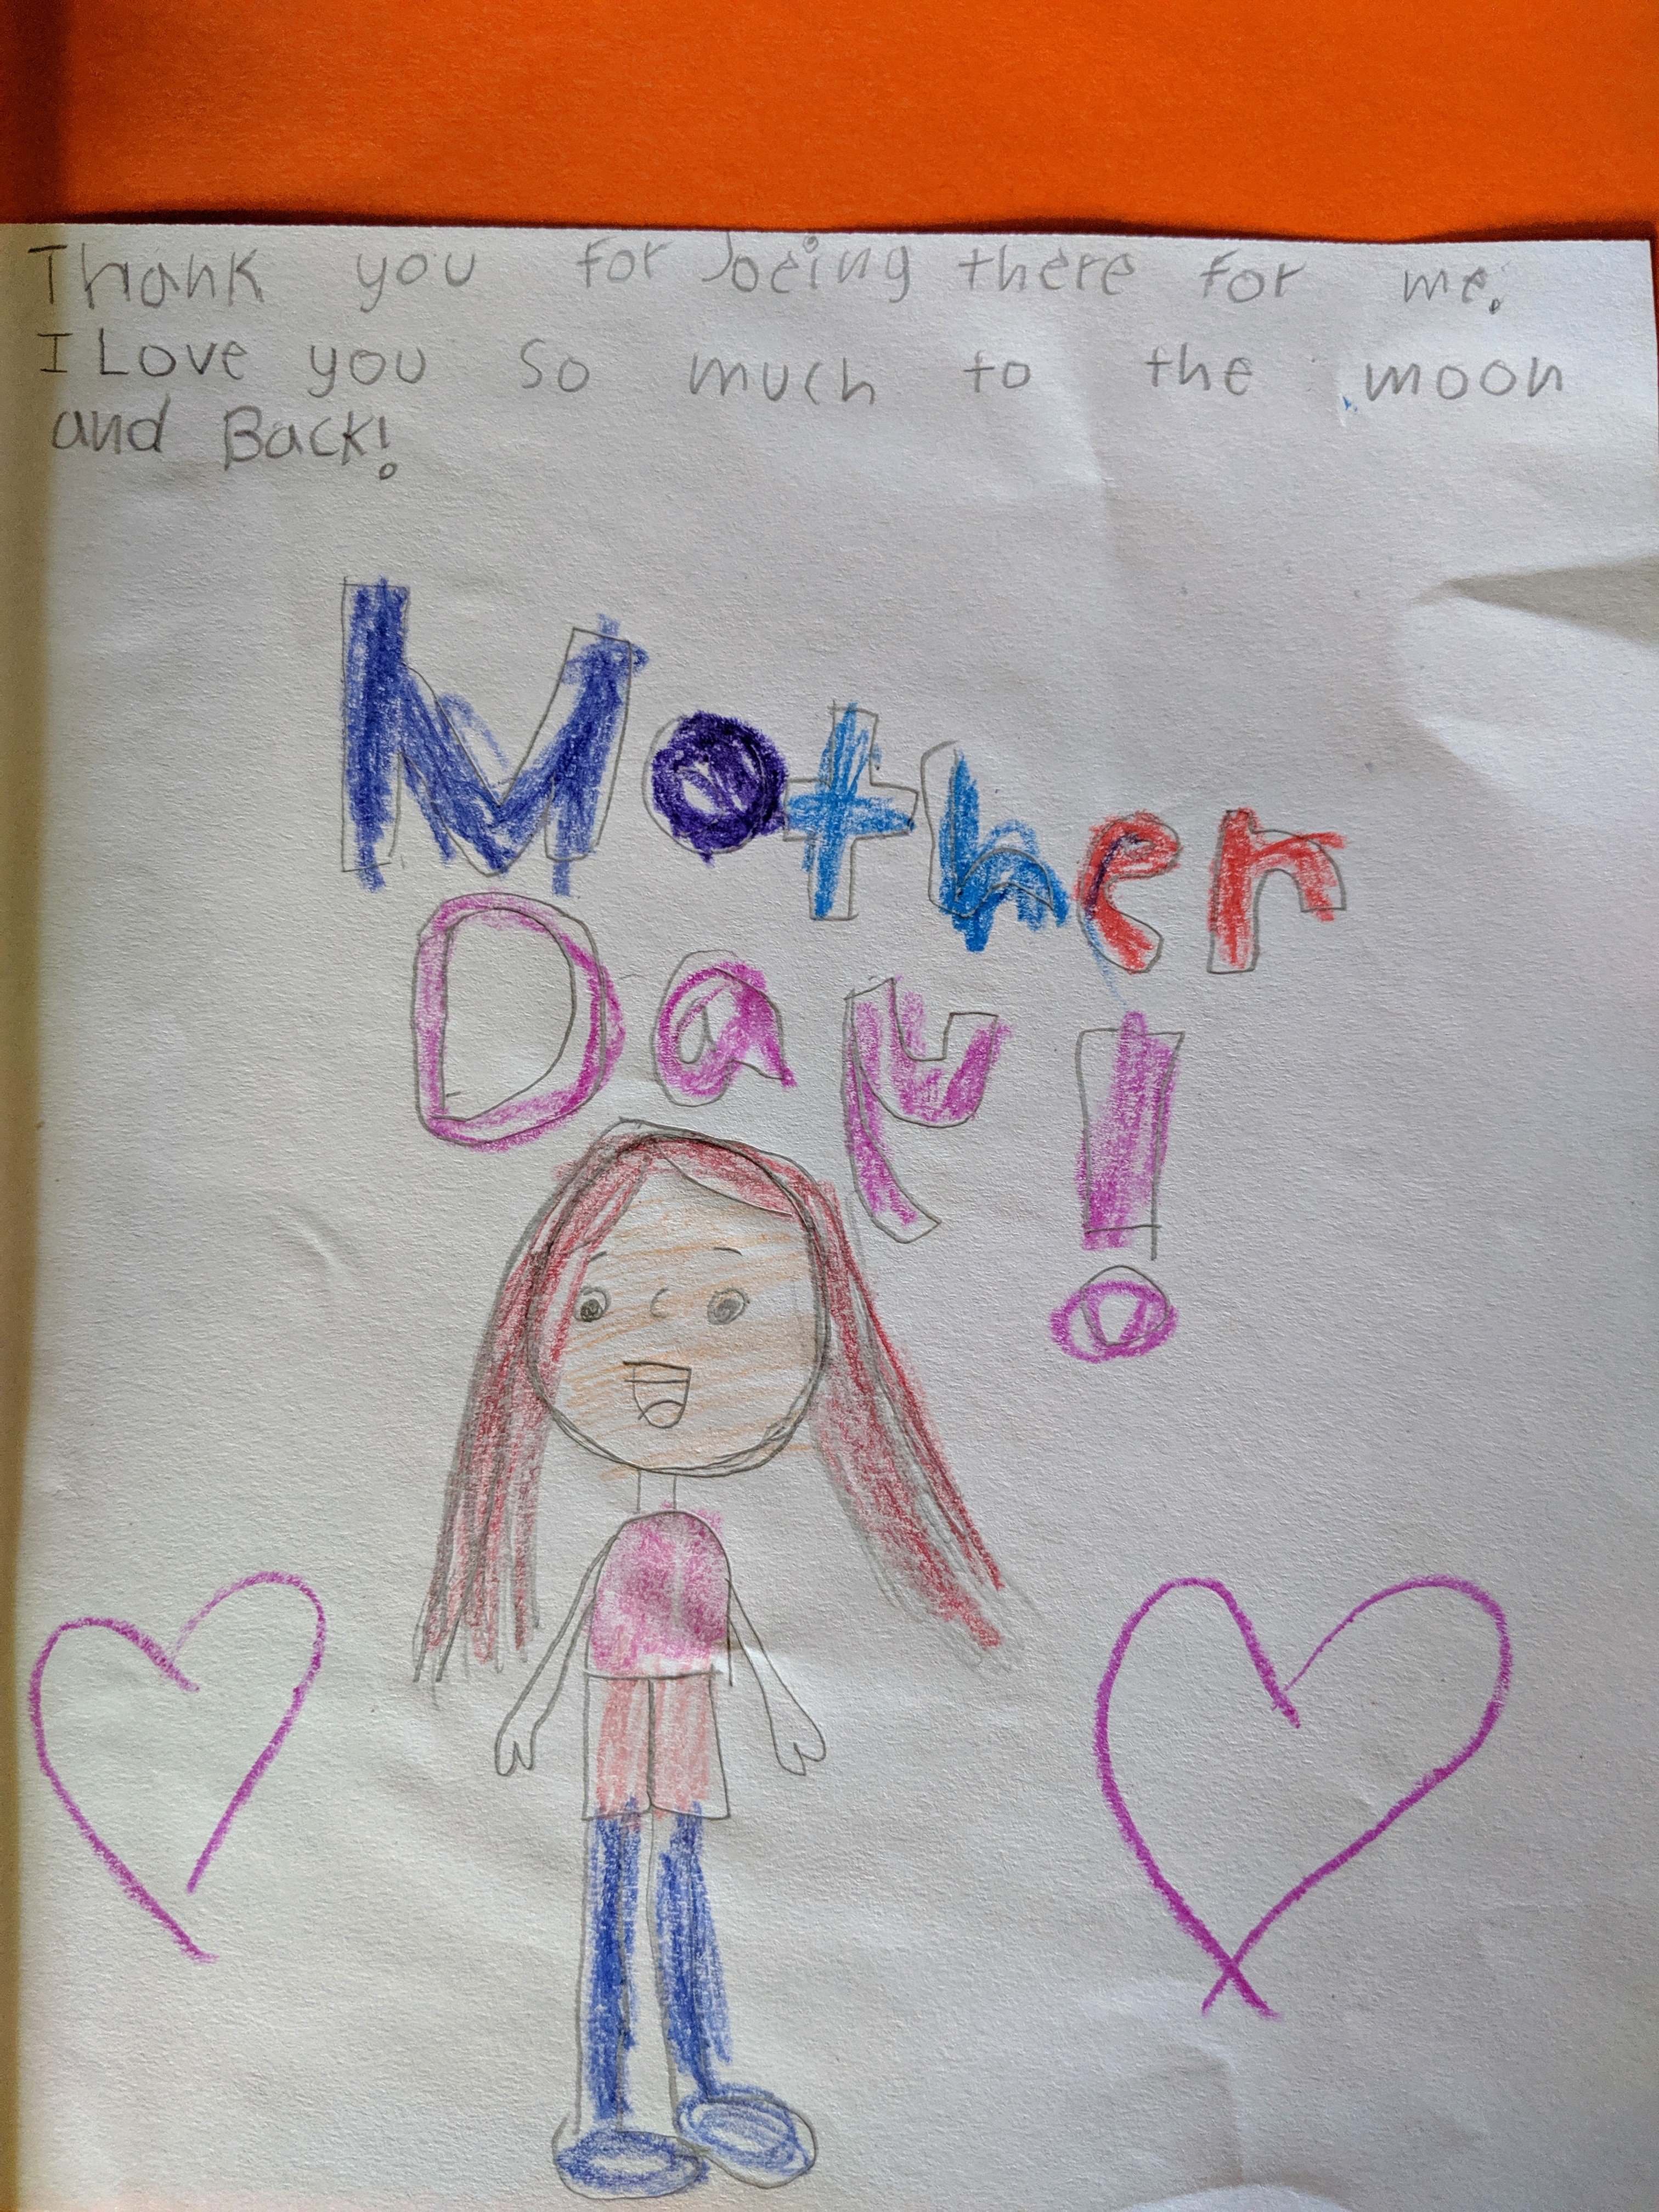 Thank you for being there for me.
I Love you so much to the moon
and Back!
Mother
Day!